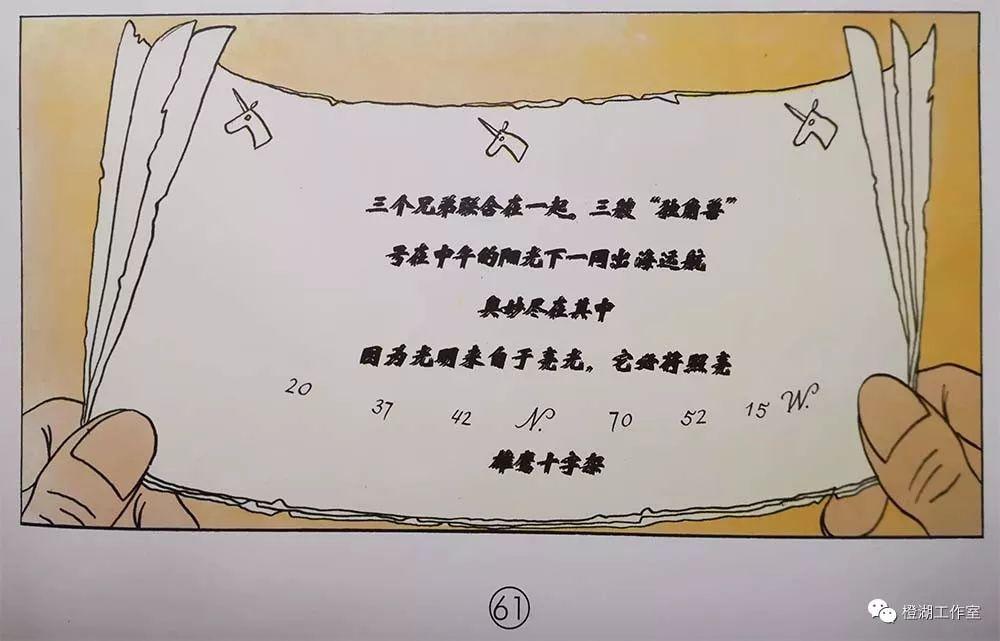 三个兄弟联合在一起。三艘“独角兽”
号在中午的阳光下一同出海远航
奥妙尽在其中
因为光明来自于亮光，它必将照亮
20 37 42 N. 70 52 15 W.
雄鹰十字架
61
橙湖工作室